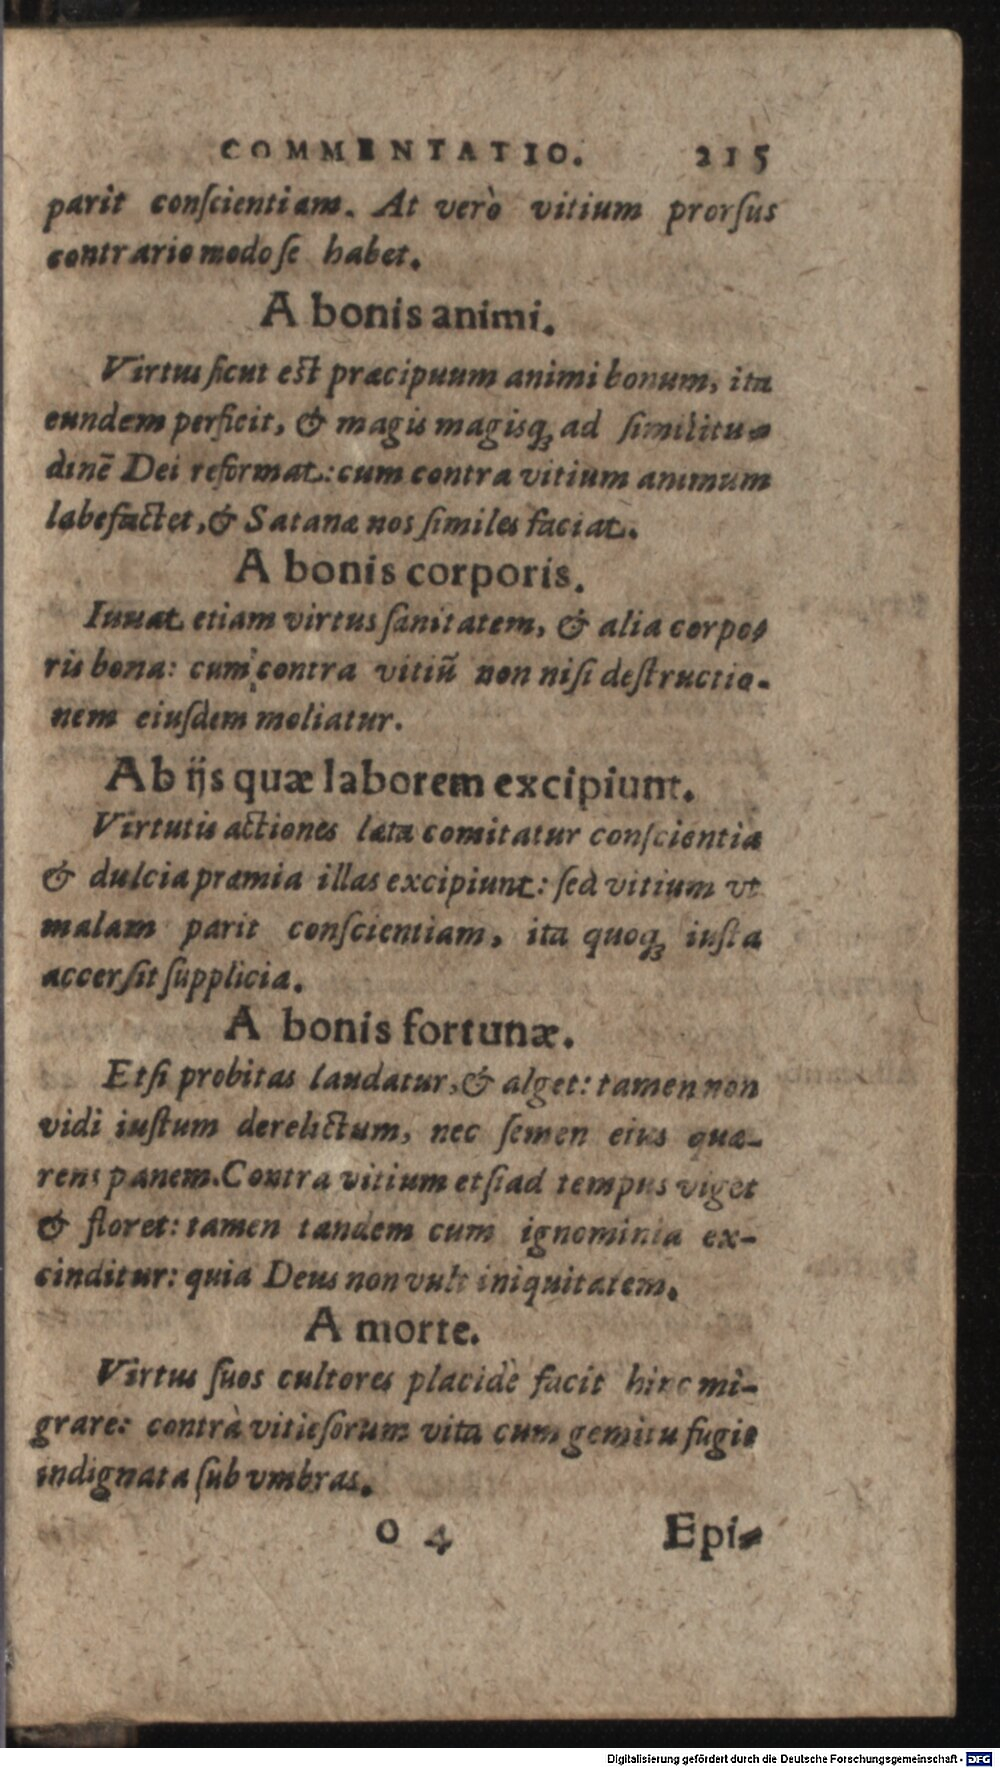 COMMENTATIO. 215
parit conſcientiam. At verò vitium prorſus
contrario modo ſe habet.
A bonis animi.
Virtus ſicut est præcipuum animi bonum, ita
eundem perficit, & magis magisq́ꝫ ad ſimilitu-
dinē Dei reformat: cum contra vitium animum
labefactet, & Satanæ nos ſimiles faciat.
A bonis corporis.
Iuuat etiam virtus ſanitatem, & alia corpo-
ris bona: cum contra vitiū non niſi deſtructio-
nem eiuſdem moliatur.
Ab ijs quæ laborem excipiunt.
Virtutis actiones læta comitatur conſcientia
& dulcia præmia illas excipiunt: ſed vitium vt
malam parit conſcientiam, ita quoqꝫ iuſta
accerſit ſupplicia.
A bonis fortunæ.
Etſi probitas laudatur, & alget: tamen non
vidi iuſtum derelictum, nec ſemen eius quæ-
rens panem. Contra vitium etſi ad tempus viget
& floret: tamen tandem cum ignominia ex-
cinditur: quia Deus non vult iniquitatem.
A morte.
Virtus ſuos cultores placidè facit hinc mi-
grare: contrà vitioſorum vita cum gemitu fugit
indignata ſub vmbras.
O 4 Epi-
Digitalisierung gefördert durch die Deutsche Forschungsgemeinschaft - DFG